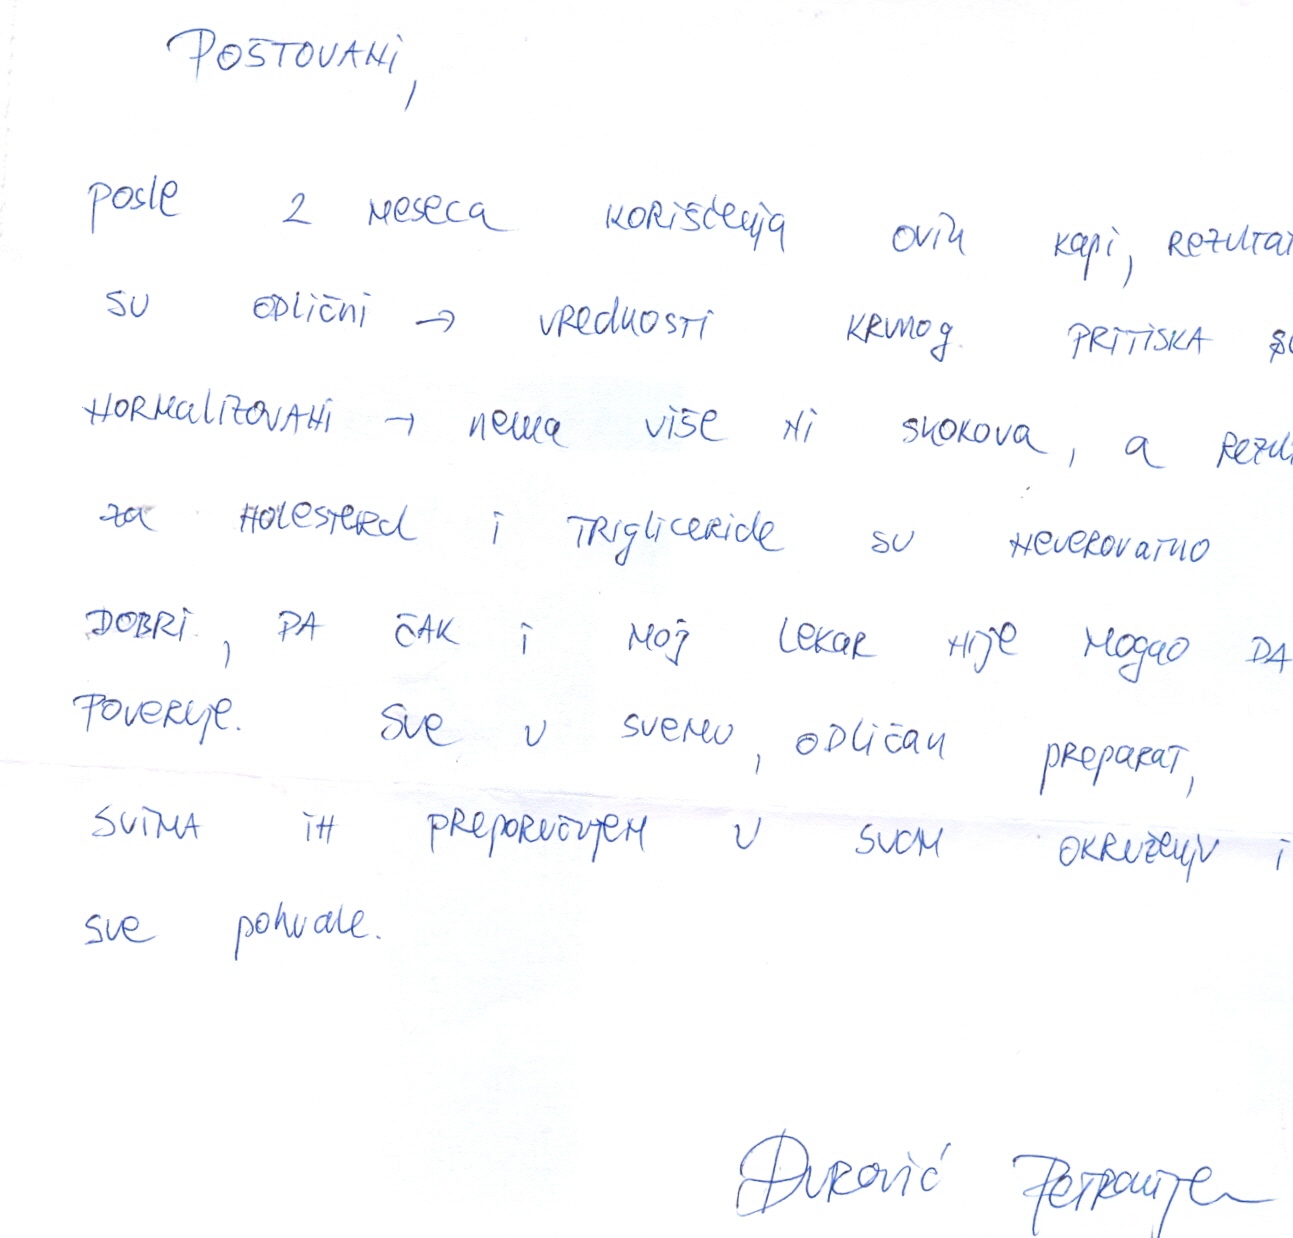 POŠTOVANI,
posle 2 meseca korišćenja ovih kapi, REZULTAT
su odlični → vrednosti krvnog PRITISKA su
normalizovani → nema više ni skokova, a
za holesterol i trigliceride su neverovatno
DOBRI, PA ČAK i moj lekar nije mogao DA
poveruje. Sve u svemu, odličan preparat,
svima ih preporučujem u svom okruženju i
sve pohvale.
Đurović